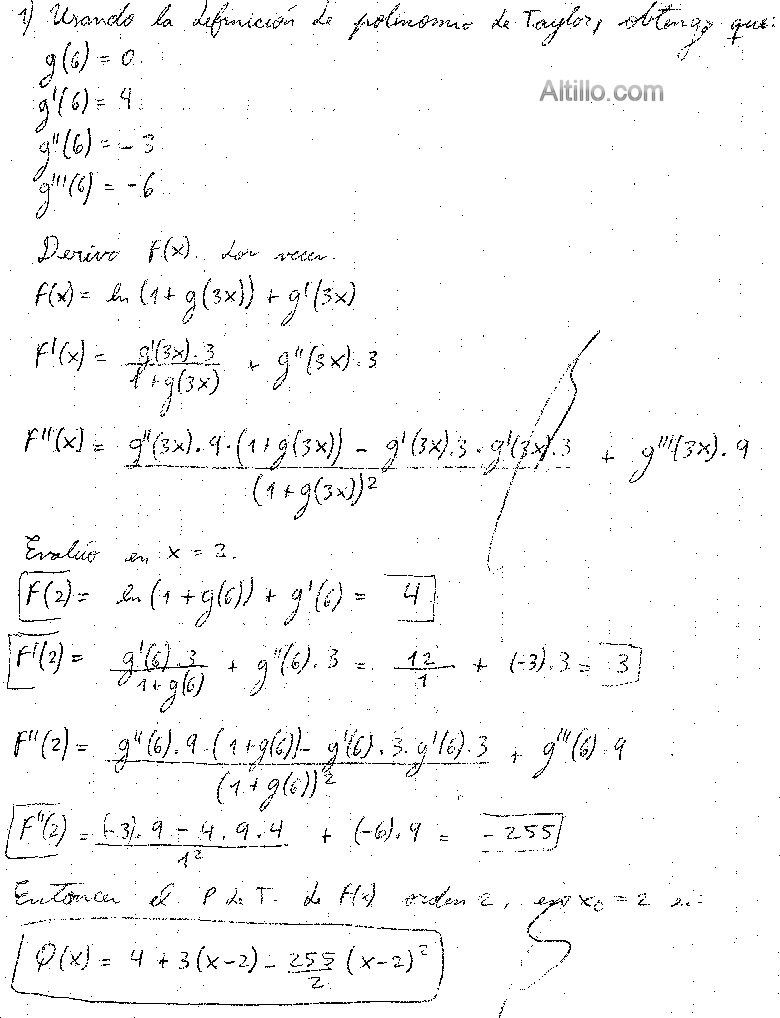 1) Usando la definición de polinomio de Taylor, obtengo que:
Altillo.com
g(6) = 0
g'(6) = 4
g''(6) = -3
g'''(6) = -6
Derivo F(x) dos veces.
F(x) = ln (1 + g(3x)) + g'(3x)
F'(x) = g'(3x).3 / 1 + g(3x) + g''(3x).3
F''(x) = g''(3x).9.(1+g(3x)) - g'(3x).3.g'(3x).3 / (1+g(3x))² + g'''(3x).9
Evalúo en x = 2.
F(2) = ln (1 + g(6)) + g'(6) = 4
F'(2) = g'(6).3 / 1+g(6) + g''(6).3 = 12 / 1 + (-3).3 = 3
F''(2) = g''(6).9.(1+g(6)) - g'(6).3.g'(6).3 / (1+g(6))² + g'''(6).9
F''(2) = (-3).9 - 4.9.4 / 1² + (-6).9 = -255
Entonces el P de T. de F(x) orden 2, en x₀ = 2 es:
Q(x) = 4 + 3(x-2) - 255/2 (x-2)²